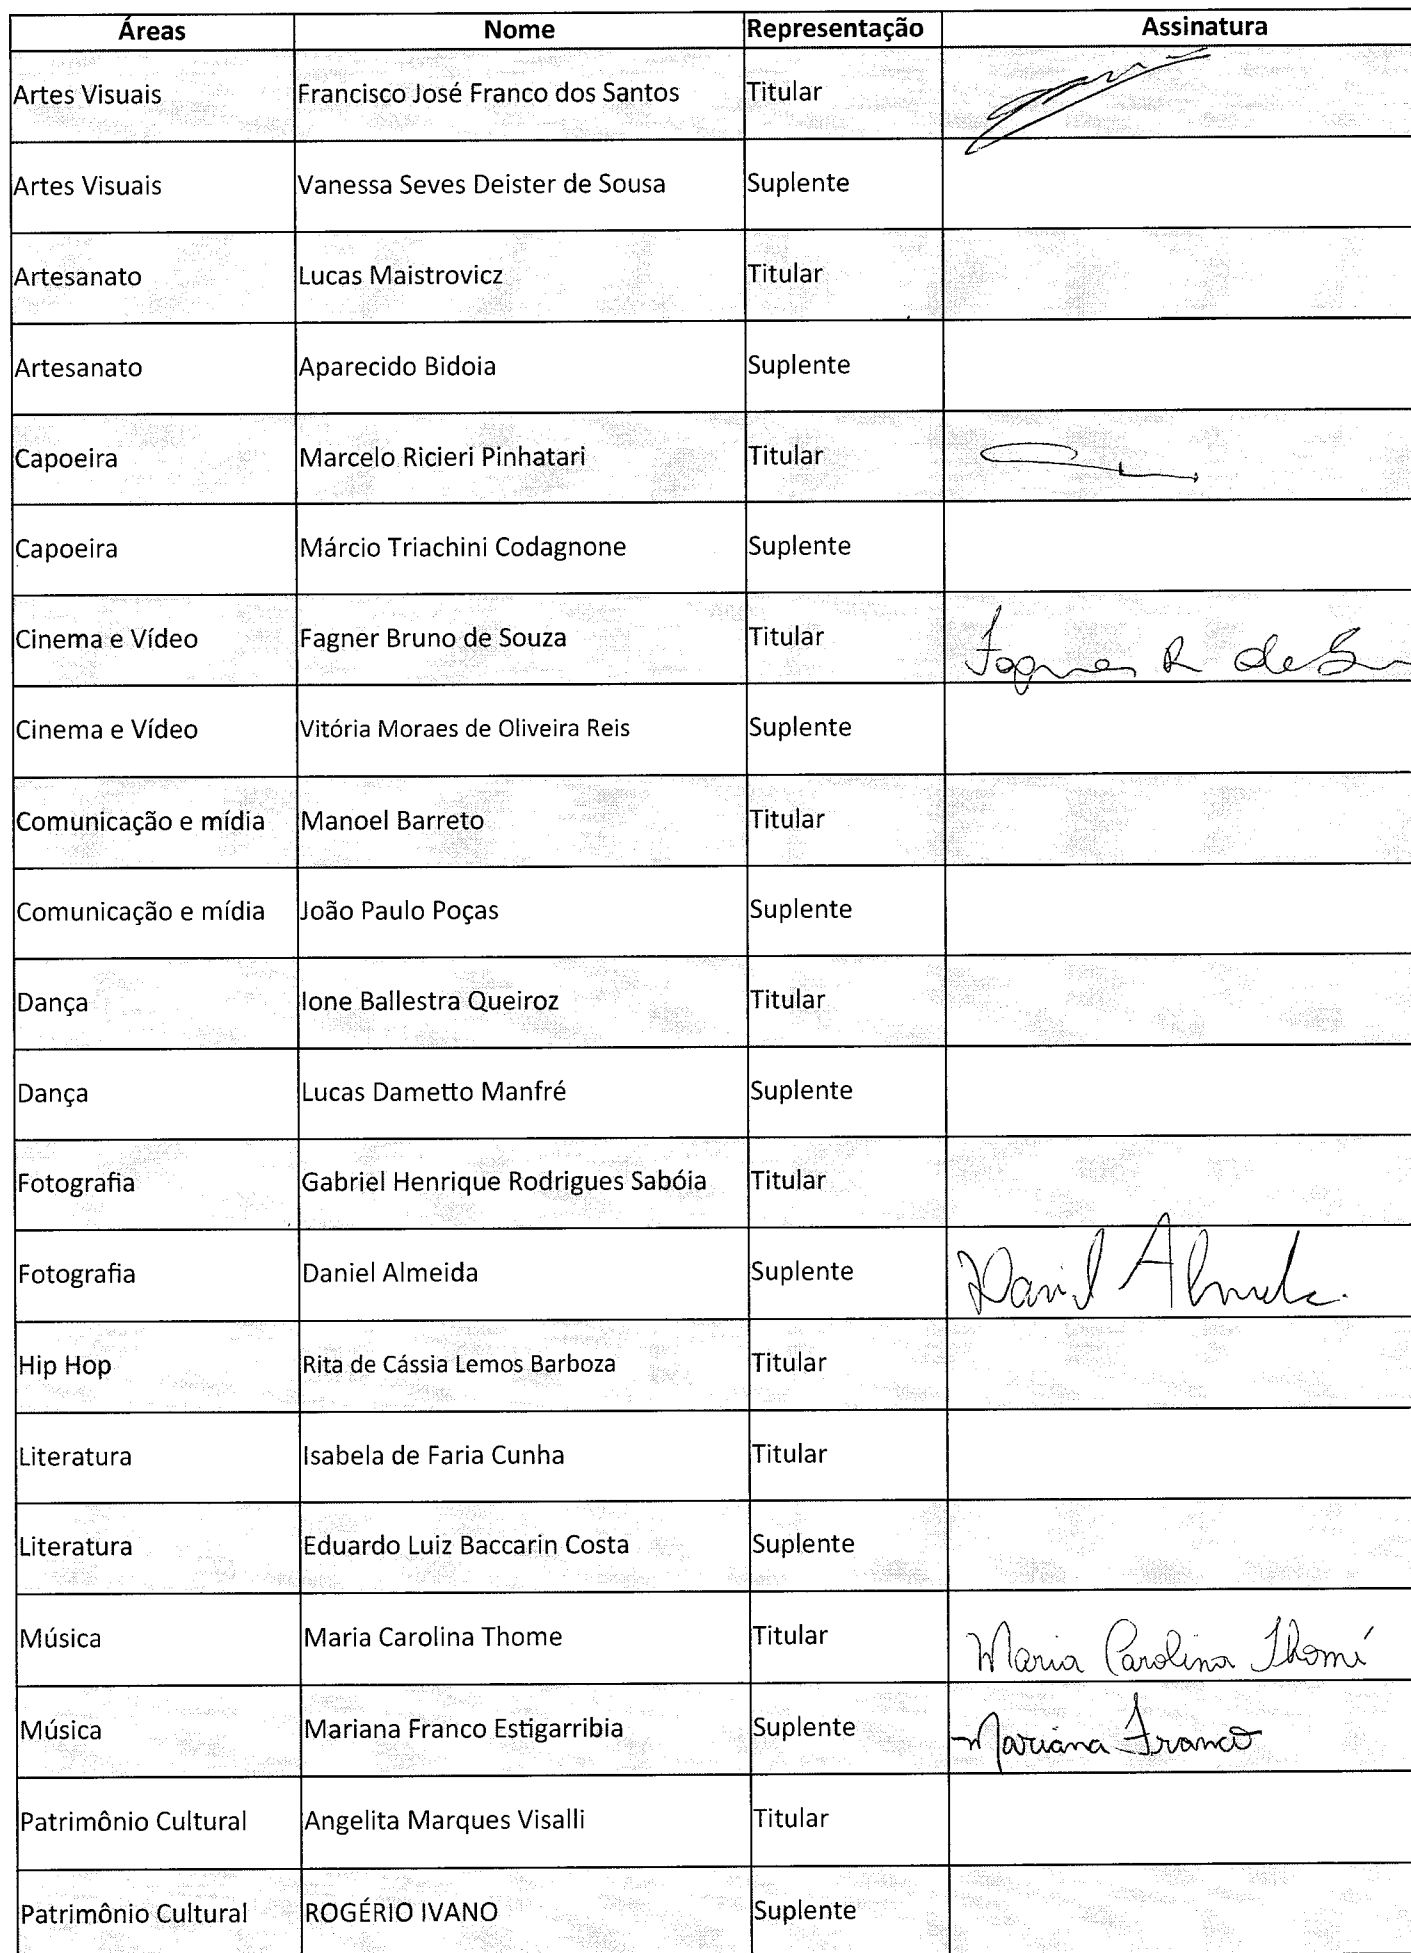 Áreas Nome Representação Assinatura
Artes Visuais Francisco José Franco dos Santos Titular
Artes Visuais Vanessa Seves Deister de Sousa Suplente
Artesanato Lucas Maistrovicz Titular
Artesanato Aparecido Bidoia Suplente
Capoeira Marcelo Ricieri Pinhatari Titular
Capoeira Márcio Triachini Codagnone Suplente
Cinema e Vídeo Fagner Bruno de Souza Titular Fagner
Cinema e Vídeo Vitória Moraes de Oliveira Reis Suplente
Comunicação e mídia Manoel Barreto Titular
Comunicação e mídia João Paulo Poças Suplente
Dança Ione Ballestra Queiroz Titular
Dança Lucas Dametto Manfré Suplente
Fotografia Gabriel Henrique Rodrigues Sabóia Titular
Fotografia Daniel Almeida Suplente Daniel Almeida
Hip Hop Rita de Cássia Lemos Barboza Titular
Literatura Isabela de Faria Cunha Titular
Literatura Eduardo Luiz Baccarin Costa Suplente
Música Maria Carolina Thome Titular Maria Carolina Thomé
Música Mariana Franco Estigarribia Suplente Mariana Franco
Patrimônio Cultural Angelita Marques Visalli Titular
Patrimônio Cultural ROGÉRIO IVANO Suplente